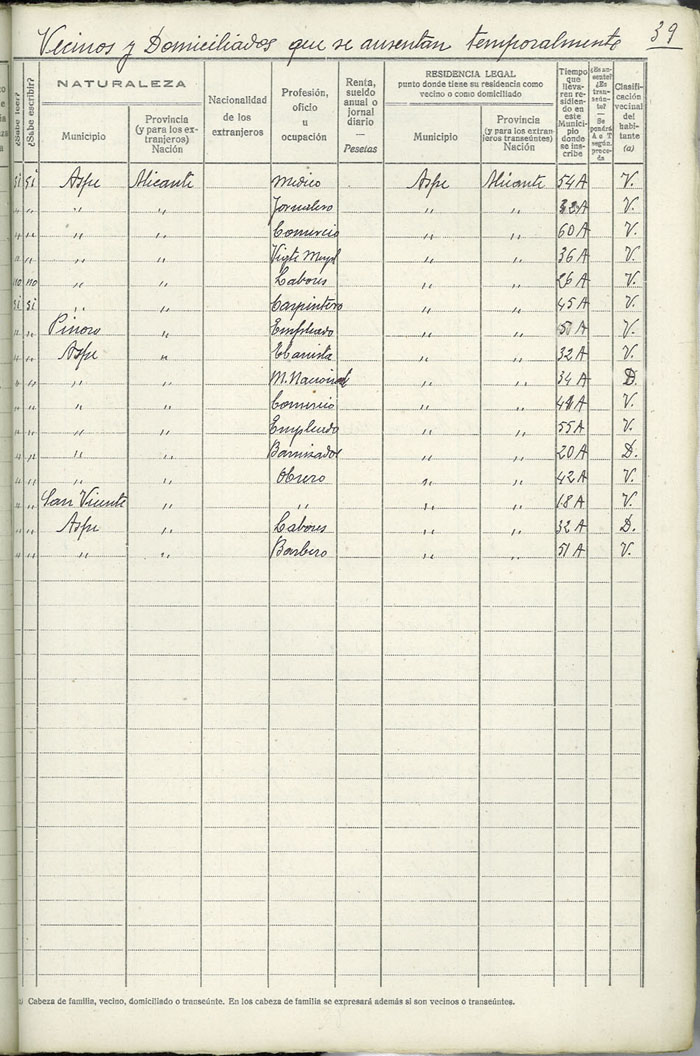 Vecinos y Domiciliados que se ausentan temporalmente 39
¿Sabe leer? ¿Sabe escribir? NATURALEZA Municipio Provincia (y para los extranjeros) Nación Nacionalidad de los extranjeros Profesión, oficio u ocupación Renta, sueldo anual o jornal diario — Pesetas RESIDENCIA LEGAL punto donde tiene su residencia como vecino o como domiciliado Municipio Provincia (y para los extranjeros transeúntes) Nación Tiempo que llevaren residiendo en este Municipio donde se inscribe ¿Es ausente? ¿Es transeúnte? — Se pondrá A o T según proceda Clasificación vecinal del habitante (a)
si si Aspe Alicante Médico Aspe Alicante 54 A V.
" " " " Jornalero " " A V.
" " " " Comercio " " 60 A V.
" " " " Vigte " " 36 A V.
no no " " Labores " " 26 A V.
si si " " Carpintero " " 45 A V.
" " Pinoso " Empleado " " 51 A V.
" " Aspe " Ebanista " " 32 A V.
" " " " M. Nacional " " 34 A D.
" " " " Comercio " " A V.
" " " " Empleado " " 55 A V.
" " " " Barnizador " " 20 A D.
" " " " Obrero " " 42 A V.
" " San Vicente " " " " 18 A V.
" " Aspe " Labores " " 32 A D.
" " " " Barbero " " 51 A V.
Cabeza de familia, vecino, domiciliado o transeúnte. En los cabeza de familia se expresará además si son vecinos o transeúntes.